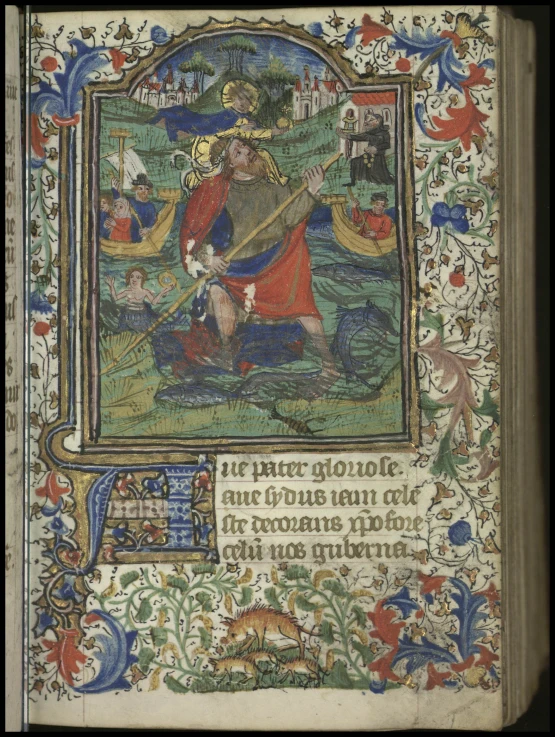 Aue pater gloriose.
aue sydus iam cele
ste decorans xp̄ofore
celū nos guberna.